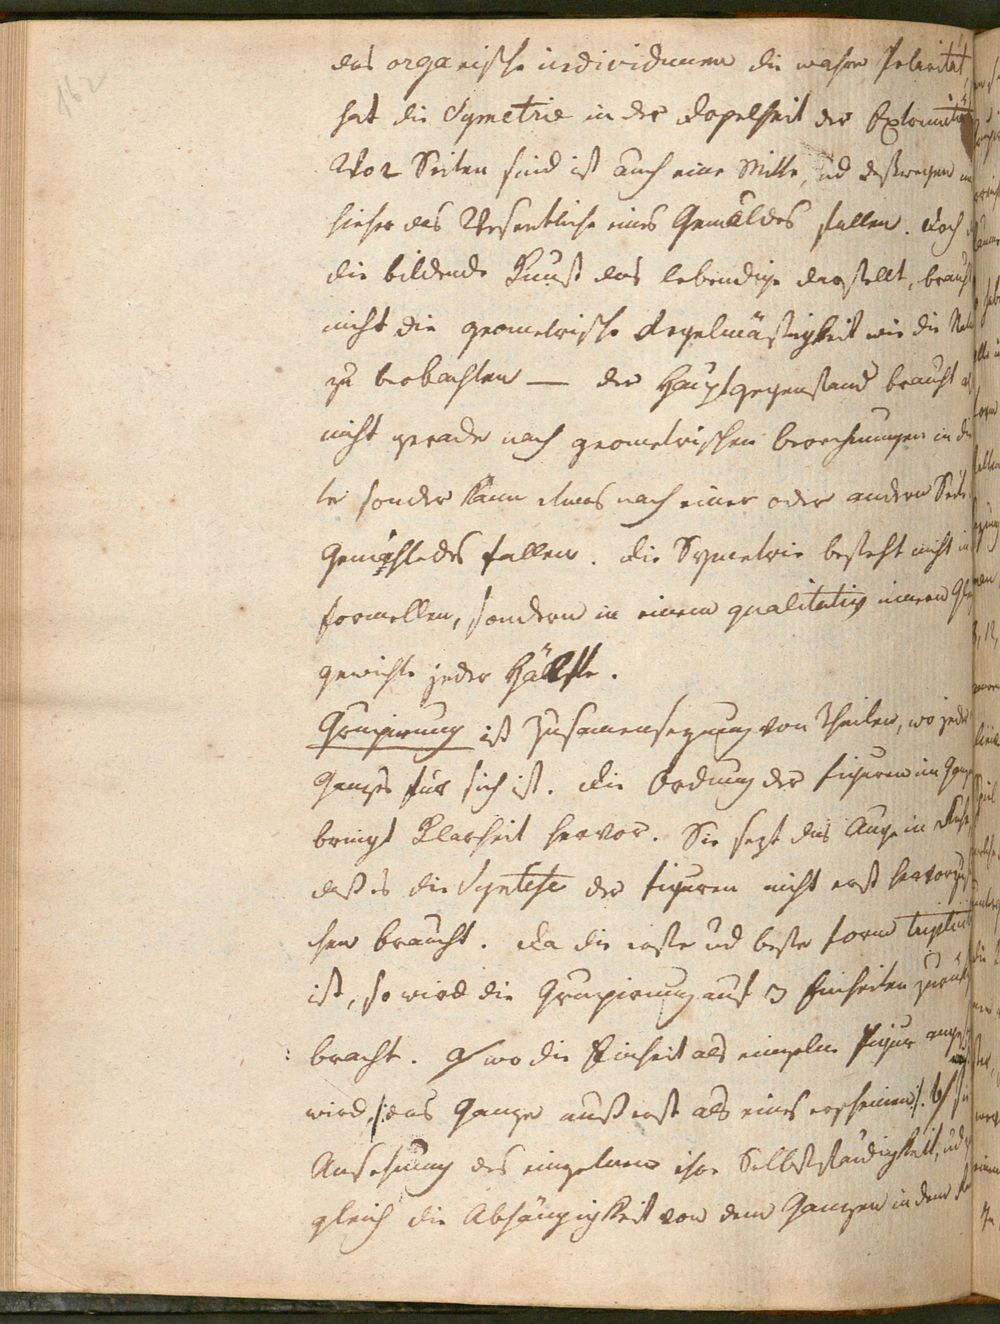 162
das organische individuum die wahre Polarität,
hat die Symetrie in der Dopelheit der Extremität
Wo 2 Seiten sind ist auch eine Mitte, ud deßwegen
hieher das Wesentliche eines Gemäldes stellen. Doch
die bildende Kunst das lebendige darstellt, braucht
nicht die geometrische Regelmäßigkeit wie die
zu beobachten — der Hauptgegenstand braucht
nicht gerade nach geometrischen berechnungen in die
te sonder kann etwas nach einer oder andern Seite
Gemähldes fallen. die Symetrie besteht nicht in
formellen, sondern in einem qualitativ innern
gewichte jeder Hälfte.
Grupirung ist Zusamensezung von Theilen, wo jeder
Ganzes für sich ist. Die Ordnung der figuren im
bringt Klarheit hervor. Sie sezt das Auge in Ruhe
daß es die Syntese der figuren nicht erst
chen braucht. Da die erste ud beste form
ist, so wird die Grupirung auf 3 Einheiten
bracht. a/ wo die Einheit als einzelne figur
wird /: das Ganze muß erst als eines erscheinen :/. b/
Ansehung des einzelnen ihre Selbstständigkeit, ud
gleich die Abhängigkeit von dem Ganzen in dem